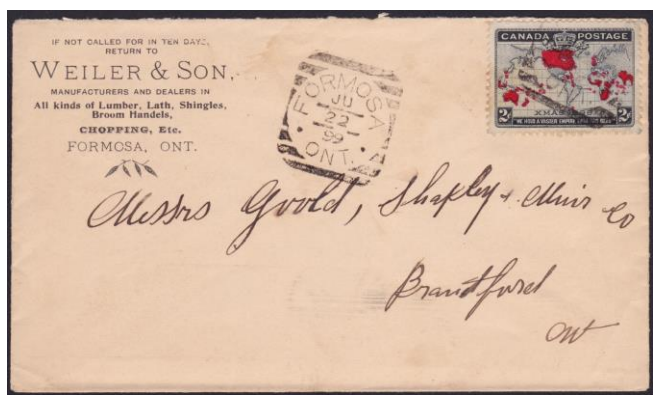 IF NOT CALLED FOR IN TEN DAYS,
RETURN TO
WEILER & SON,
MANUFACTURERS AND DEALERS IN
All kinds of Lumber, Lath, Shingles,
Broom Handels,
CHOPPING, Etc.
FORMOSA, ONT.
FORMOSA
JU
22
99
ONT.
CANADA POSTAGE
XMAS
2 2
"WE HOLD A VASTER EMPIRE THAN HAS BEEN"
Messrs Goold, Shapley & Muir Co
Brantford
Ont